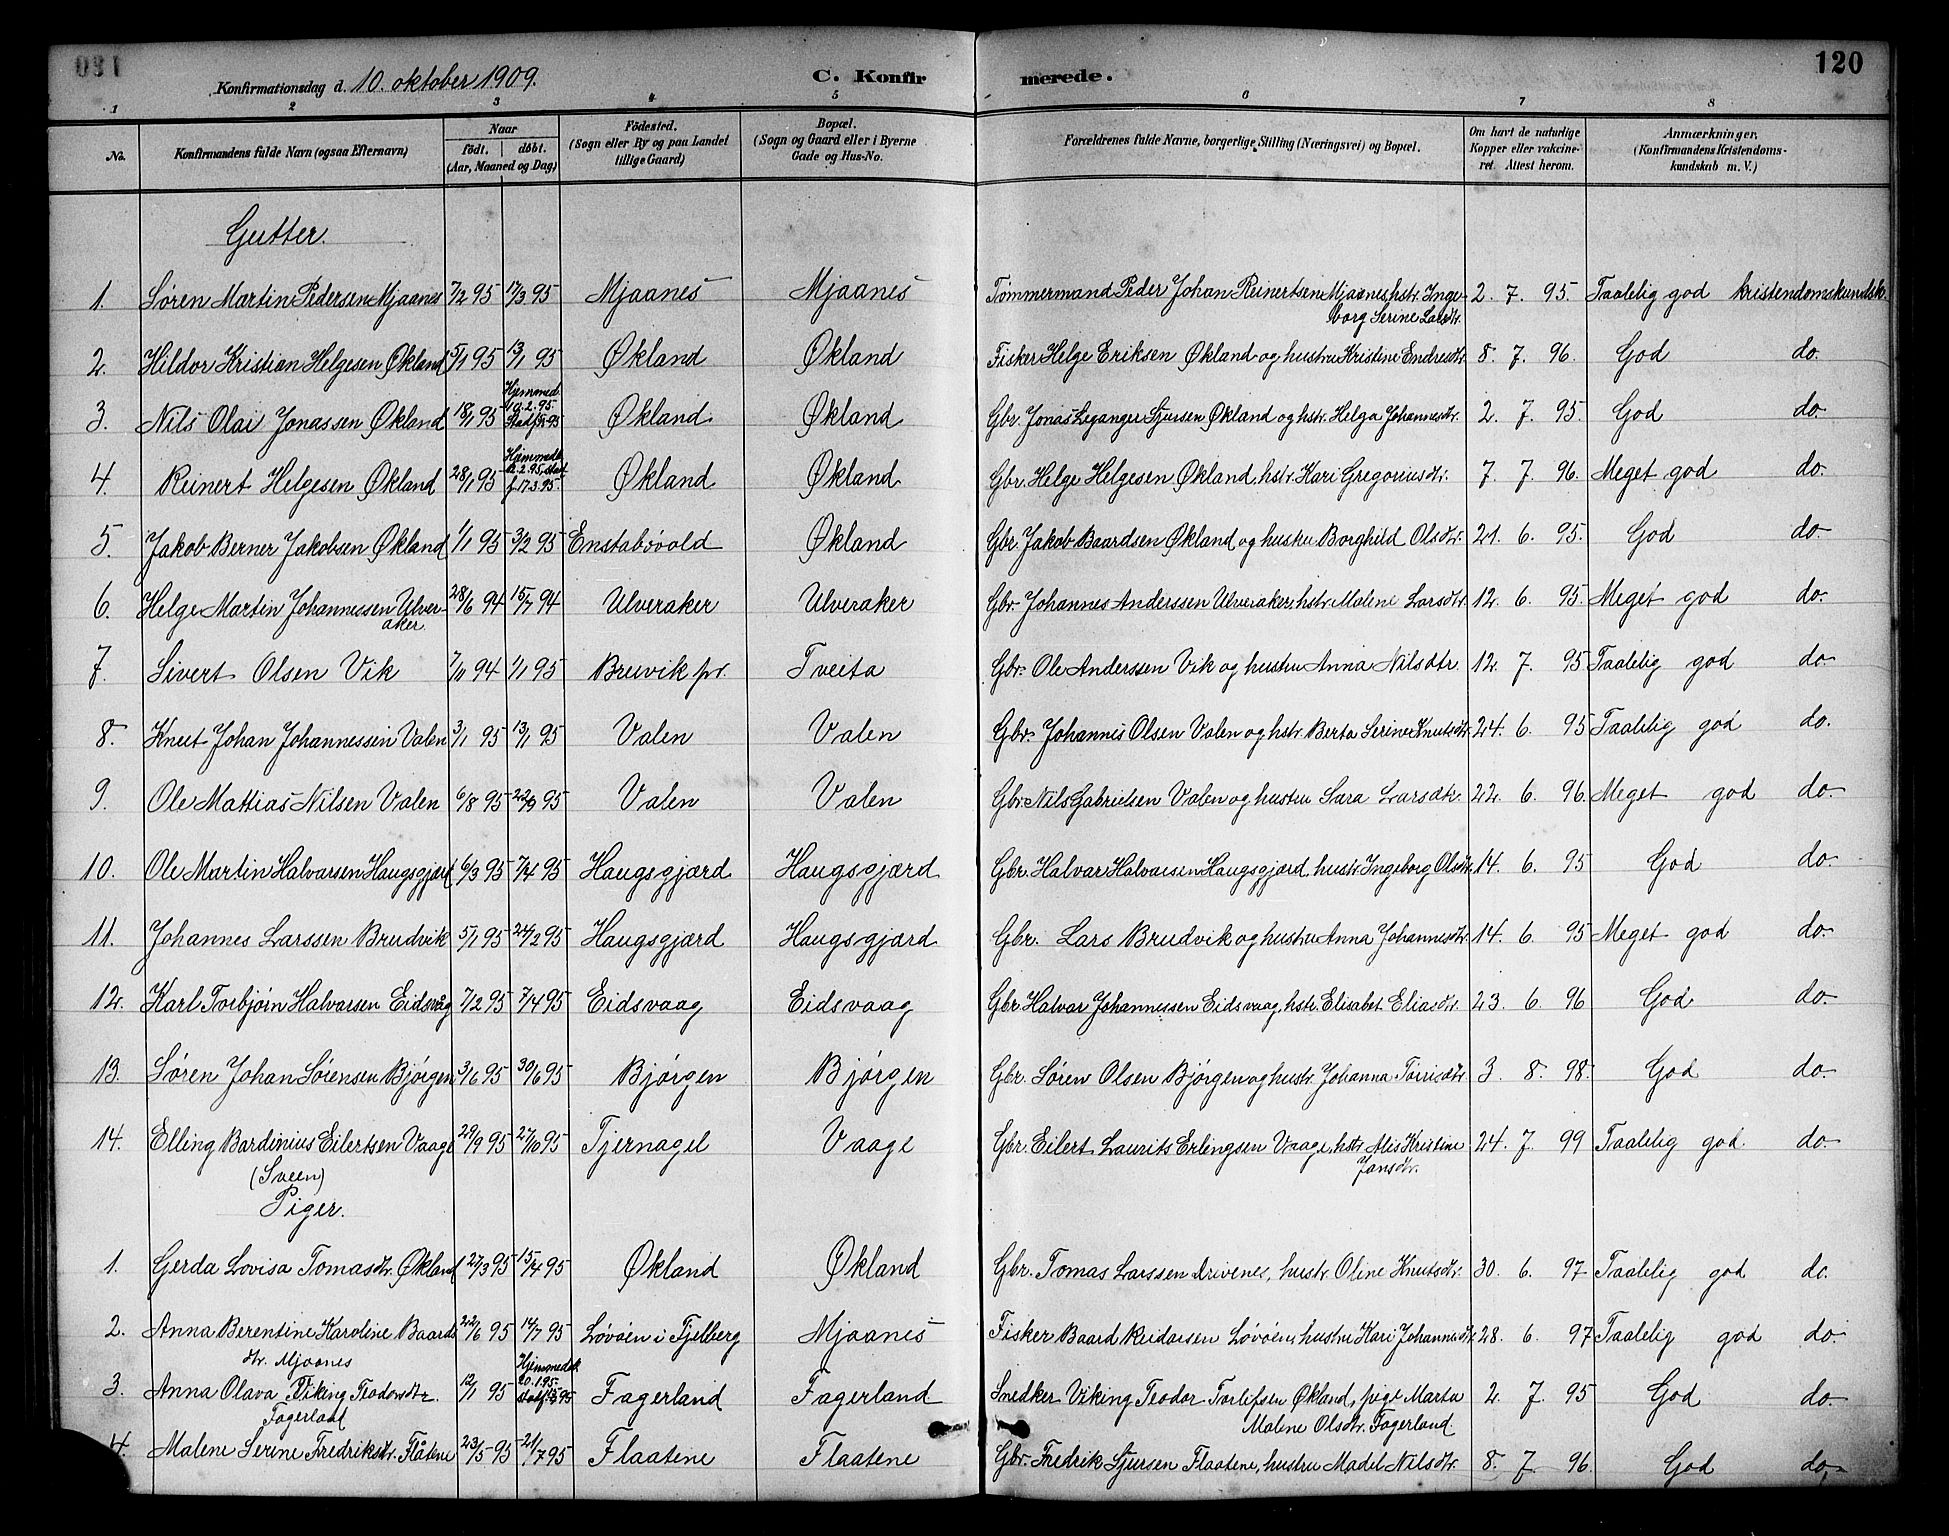 120
Konfirmationsdag d. 10. oktober 1909.
C. Konfirmerede.
1 2 3 4 5 6 7 8
No.
Konfirmandens fulde Navn (ogsaa Efternavn)
Naar
födt. döbt.
(Aar, Maaned og Dag)
Födested.
(Sogn eller By og paa Landet
tillige Gaard)
Bopæl.
(Sogn og Gaard eller i Byerne
Gade og Hus-No.
Forældrenes fulde Navne, borgerlige Stilling (Næringsvei) og Bopæl.
Om havt de naturlige
Kopper eller vakcine-
ret. Attest herom.
Anmærkninger,
(Konfirmandens Kristendoms-
kundskab m. V.)
Gutter.
1. Søren Martin Pedersen Mjaanes 7/2 95 17/3 95 Mjaanes Mjaanes Tømmermand Peder Johan Reinertsen Mjaanes, hstr. Inge- 2. 7. 95. Taalelig god kristendomskundsk.
borg Serine Larsdtr.
2. Hildor Kristian Helgesen Økland 5/1 95 13/1 95 Økland Økland Fisker Helge Eriksen Økland og hustru Kristine Endresdtr. 8. 7. 96. God do.
3. Nils Olai Jonassen Økland 18/1 95 Hjemmed. 19.2.95. Stadf. 95 Økland Økland Gbr. Jonas Leganger Sjursen Økland og hstr. Helga Johannesdtr. 2. 7. 95. God do.
4. Reinert Helgesen Økland 28/1 95 Hjemmedb. 12.2.95, stadf. 17.3.95. Økland Økland Gbr. Helge Helgesen Økland, hstr. Kari Gregoriusdtr. 7. 7. 96. Meget god do.
5. Jakob Berner Jakobsen Økland 1/1 95 3/2 95 Enstabövold Økland Gbr. Jakob Baardsen Økland og hustru Borghild Olsdtr. 21. 6. 95. God do.
6. Helge Martin Johannessen Ulver- 28/6 94 15/7 94 Ulveraker Ulveraker Gbr. Johannes Anderssen Ulveraker, hstr. Malene Larsdtr. 12. 6. 95. Meget god do.
aker.
7. Sivert Olsen Vik 7/11 94 1/1 95 Bruvik pr. Tveita Gbr. Ole Anderssen Vik og hustru Anna Nilsdtr. 12. 7. 95 Taalelig god do.
8. Knut Johan Johannessen Valen 3/1 95 13/1 95 Valen Valen Gbr. Johannes Olsen Valen og hstr. Berta Serine Knutsdtr. 24. 6. 95 Taalelig god do.
9. Ole Mattias Nilsen Valen 6/8 95 22/9 95 Valen Valen Gbr. Nils Gabrielsen Valen og hustru Sara Larsdtr. 22. 6. 96. Meget god do.
10. Ole Martin Halvarsen Haugsgjærd 6/3 95 7/4 95 Haugsgjærd Haugsgjærd Gbr. Halvar Halvarsen Haugsgjærd, hustr. Ingeborg Olsdtr. 14. 6. 95 God do.
11. Johannes Larssen Brudvik 5/1 95 24/2 95 Haugsgjærd Haugsgjærd Gbr. Lars Brudvik og hustru Anna Johannesdtr. 14. 6. 95 Meget god do.
12. Karl Torbjørn Halvarsen Eidsvåg 7/2 95 7/4 95 Eidsvaag Eidsvaag Gbr. Halvar Johannessen Eidsvaag, hstr. Elisabet Eliasdtr. 23. 6. 96 God do.
13. Søren Johan Sørensen Bjørgen 3/6 95 30/6 95 Bjørgen Bjørgen Gbr. Søren Olsen Bjørgen og hustr. Johanna Tørrisdtr. 3. 8. 98. God do.
14. Elling Bardinius Eilertsen Vaage 29/9 95 27/10 95 Tjernagel Vaage Gbr. Eilert Laurits Erlingsen Vaage, hstr. Alis Kristine 24. 7. 99 Taalelig god. do.
(Sveen) Jansdtr.
Piger.
1. Gerda Lovisa Tomasdtr. Økland 27/3 95 15/4 95 Økland Økland Gbr. Tomas Larssen Drivenes, hustr. Oline Knutsdtr. 30. 6. 97 Taalelig god do.
2. Anna Berentine Karoline Baards 22/6 95 14/7 95 Løvøen i Fjelberg Mjaanes Fisker Baard Reidarsen Løvøen, hustru Kari Johannesdtr. 28. 6. 97 Taalelig god do.
dtr. Mjaanes
3. Anna Olava Viking Teodorsdtr. 12/1 95 Hjemmedb. 20.1.95. stadf. 95 Fagerland Fagerland Snedker Viking Teodor Torleifsen Økland, pige Marta 2. 7. 95 God do.
Fagerland Malene Olsdtr. Fagerland
4. Malene Serine Fredriksdtr. Flåtene 23/5 95 21/7 95 Flaatene Flaatene Gbr. Fredrik Sjursen Flaatene, hustru Madel Nilsdtr. 8. 7. 96. God do.